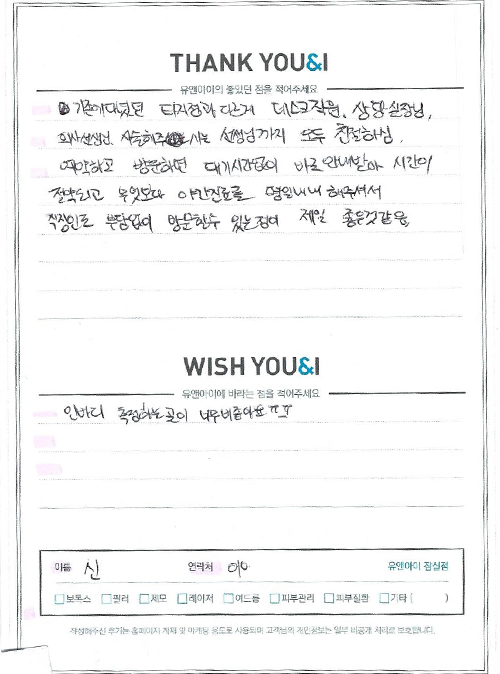 THANK YOU&I
유앤아이의 좋았던 점을 적어주세요
기존에 다녔던 타지점과 다르게 데스크직원, 상담실장님,
의사선생님, 시술해주시는 선생님까지 모두 친절하심.
예약하고 방문하면 대기시간없이 바로 안내받아 시간이
절약되고 무엇보다 야간진료를 평일내내 해주셔서
직장인도 부담없이 방문할수 있는점이 제일 좋은것같음.
WISH YOU&I
유앤아이에 바라는 점을 적어주세요
인바디 측정하는 곳이 너무비좁아요 ㅠㅠ
이름 신
연락처 010
유앤아이 잠실점
보톡스 필러 제모 레이저 여드름 피부관리 피부질환 기타 ( )
작성해주신 후기는 홈페이지 게재 및 마케팅 용도로 사용되며 고객님의 개인정보는 일부 비공개 처리로 보호됩니다.